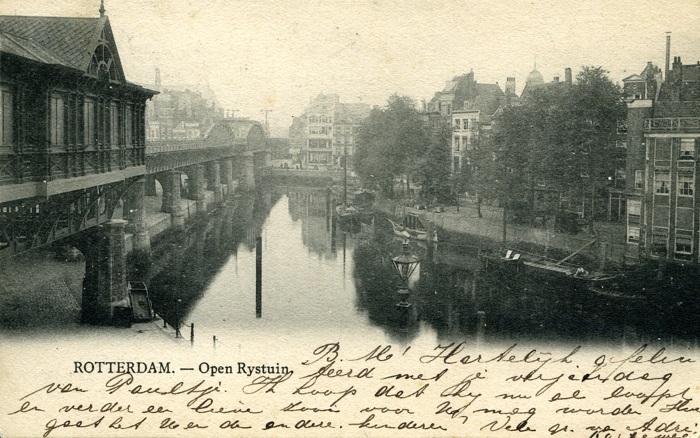 ROTTERDAM. — Open Rystuin.
B. Me! Hartelijk gefelici
teerd met je verjaardag
van Paultje. Ik hoop dat hy nu al loopt
en verder een lieve zoon voor U mag worden. Hoe
gaat het U en de andere kinderen Vele gr. van Adri.